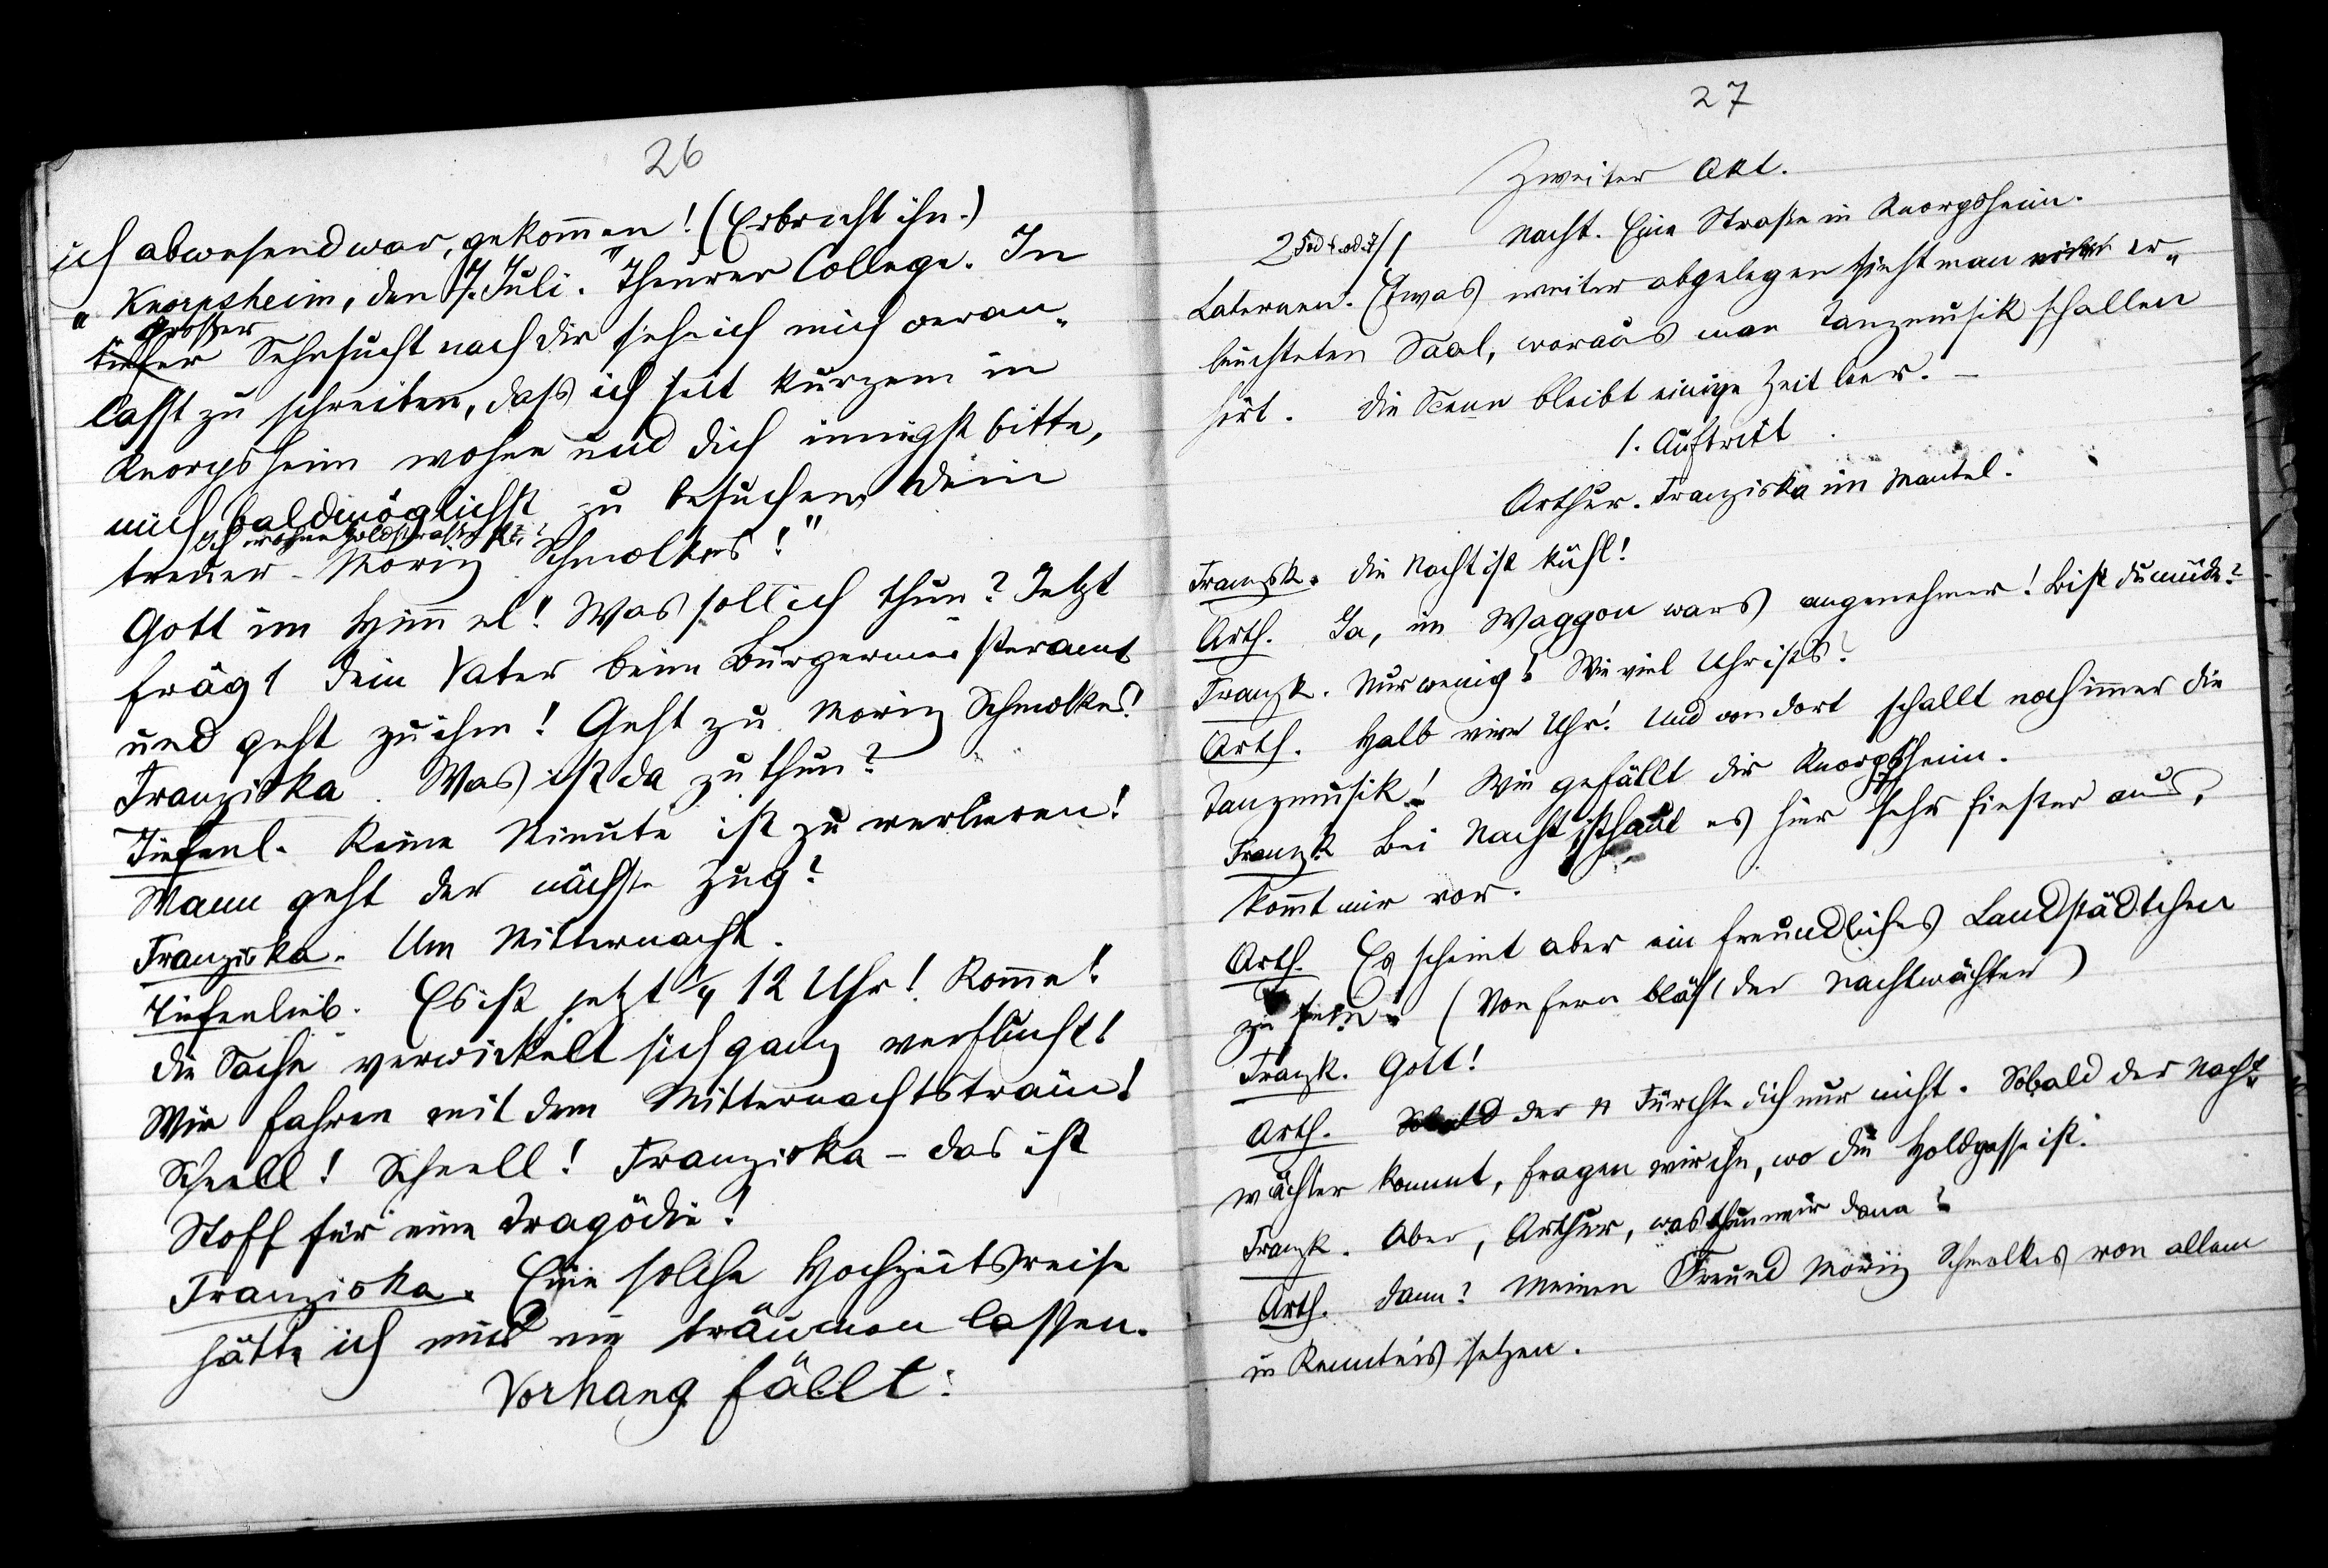 26
ich abwesend war, gekom̄en! (Erbricht ihn.)
„Knorpsheim, den 7. Juli. "Theurer College. In
großer
tiefer Sehnsucht nach dir sehe ich mich veran„
lasst zu schreiben, dass ich seit kurzem in
Knorpsheim wohne und dich innigst bitte,
mich baldmöglichst zu besuchen. Dein
Ich wohne Holdstraße
treuer Moriz Schmolkes!"
Gott im Him̄el! Was soll ich thun? Jetzt
frägt dein Vater beim Bürgermeisteramt
und geht zu ihm! Geht zu Moriz Schmolkes!
Franziska. Was ist da zu thun?
Tiefenl. Keine Minute ist zu verlieren!
Wann geht der nächste Zug?
Franziska. Um Mitternacht.
Tiefenlieb. Es ist jetzt ¼ 12 Uhr! Kom̄e!
Die Sache verwickelt sich ganz verflucht!
Wir fahren mit dem Mitternachtstrain!
Schnell! Schnell! Franziska – das ist
Stoff für eine Tragödie!
Franziska. Eine solche Hochzeitsreise
hätte ich mir nie träumen lassen.
Vorhang fällt.
27
Zweiter Akt.
Nacht. Eine Straße in Knorpsheim.
Laternen. Etwas weiter abgelegen sieht man er„
leuchteten Saal, woraus man Tanzmusik schallen
hört. Die Scene bleibt einige Zeit leer. –
1. Auftritt
Arthur. Franziska im Mantel.
Franzisk. Die Nacht ist kühl!
Arth. Ja, im Waggon wars angenehmer! Bist du müde?
Franzk. Nur wenig! Wie viel Uhr ists?
Arth. Halb vier Uhr! Und von dort schallt noch im̄er die
Tanzmusik! Wie gefällt dir Knorpsheim.
Franzk Bei Nacht ist schaut es hier sehr finster aus,
kom̄t mir vor.
Arth. Es scheint aber ein freundliches Landstädtchen
zu sein! (Von fern bläst der Nachtwächter)
Franzk. Gott!
Arth. Sobald der N Fürchte dich nur nicht. Sobald der Nacht„
wächter kommt, fragen wir ihn, wo die Holdgasse ist.
Franzk. Aber, Arthur, was thun wir dann?
Arth. Dann? Meinen Freund Moriz Schmolkes von allem
in Kenntnis setzen.